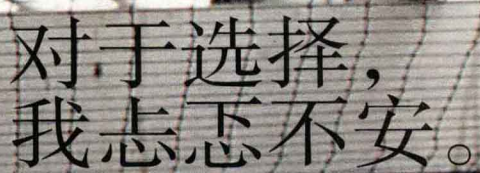 对于选择，
我忐忑不安。